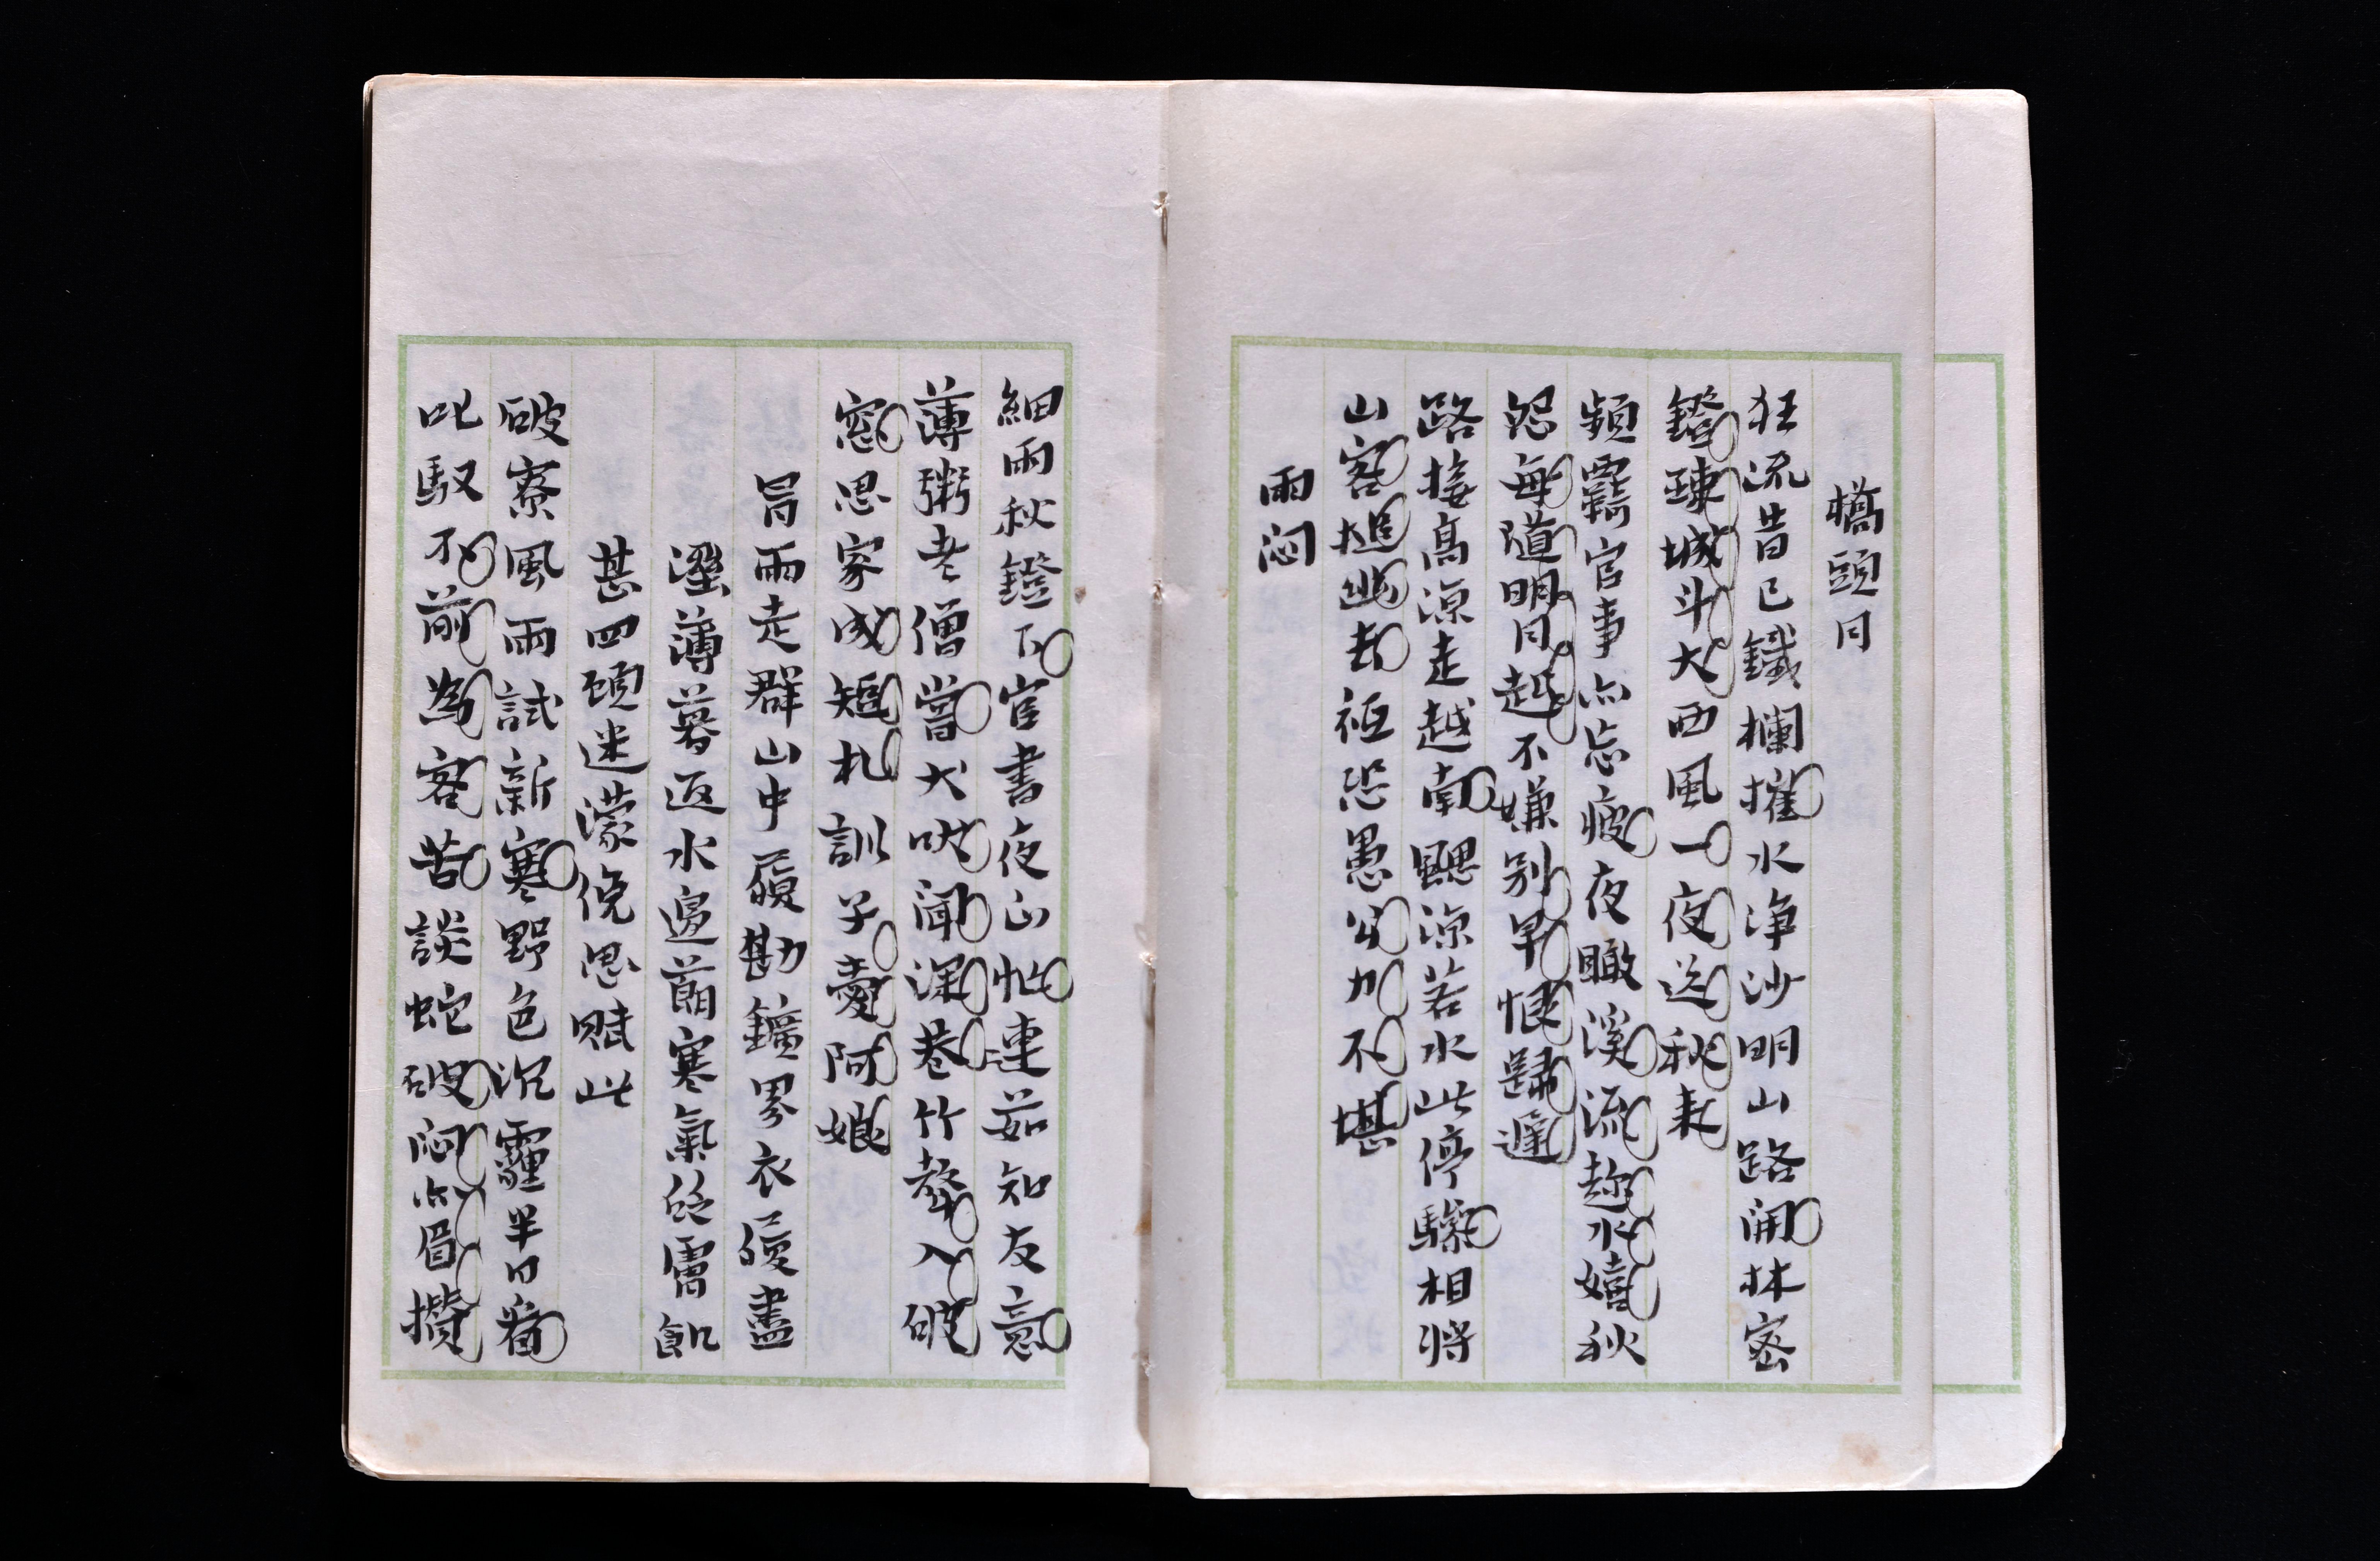 橋頭月
狂流昔已鐵欄摧水淨沙明山路開林密
鐙疎城斗大西風一夜送秋來
頻羈官事亦忘疲夜瞰溪流趁水嬉秋
怨每道明月起不嫌別早恨歸遲
路接高涼走越南颸涼若水此停驂相將
山客搥幽去祗恐愚公力不堪
雨悶
細雨秋鐙下官書夜正忙連茹知友意
薄粥老僧嘗犬吠聞深巷竹聲入破
窓思家成短札訓子憂阿娘
冒雨走群山中履勘鑛界衣履盡
溼薄暮返水邊蕳寒氣砭膚飢
甚四顧迷濛俛思賦此
破寮風雨試新寒野色沉霾半日看
叱馭不前為客苦談蛇破悶亦眉攢